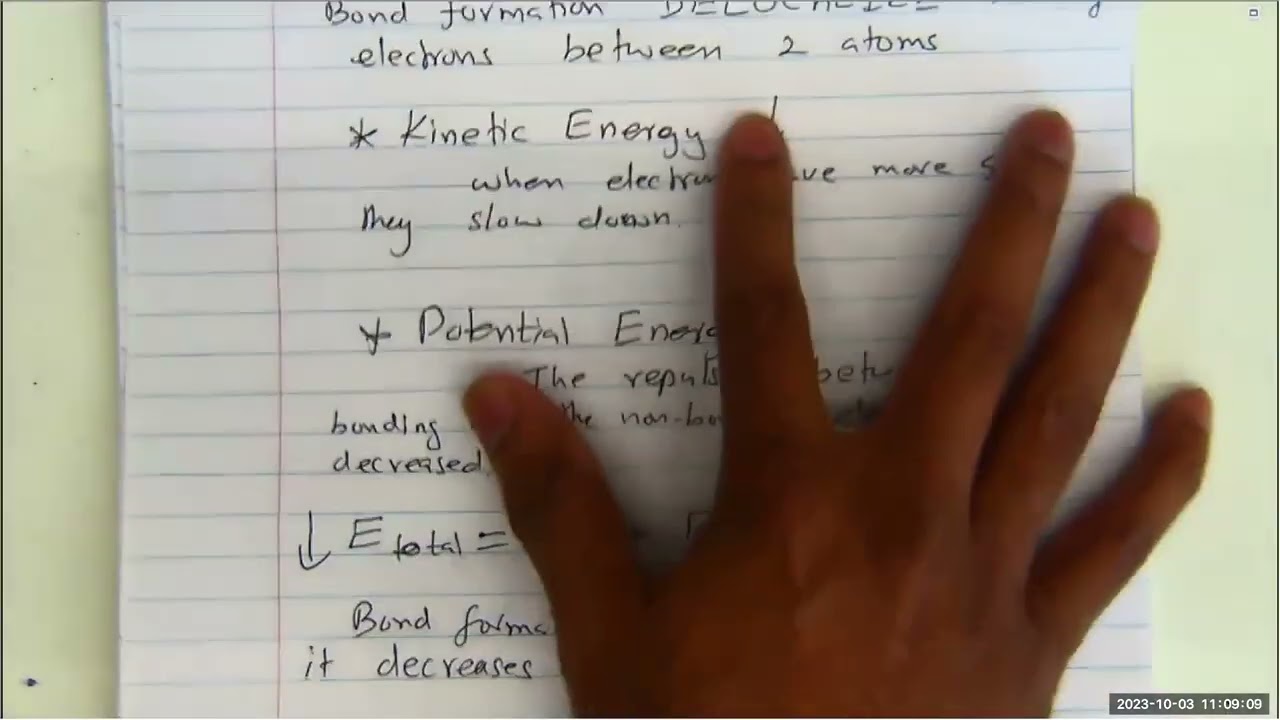 Bond formation DELOCALIZE
electrons between 2 atoms
* Kinetic Energy ↓
when more
They slow down.
* Potential Energ
The repuls betw
bonding the non-bo
decreased.
↓ E total =
Bond forma
it decreases
2023-10-03 11:09:09